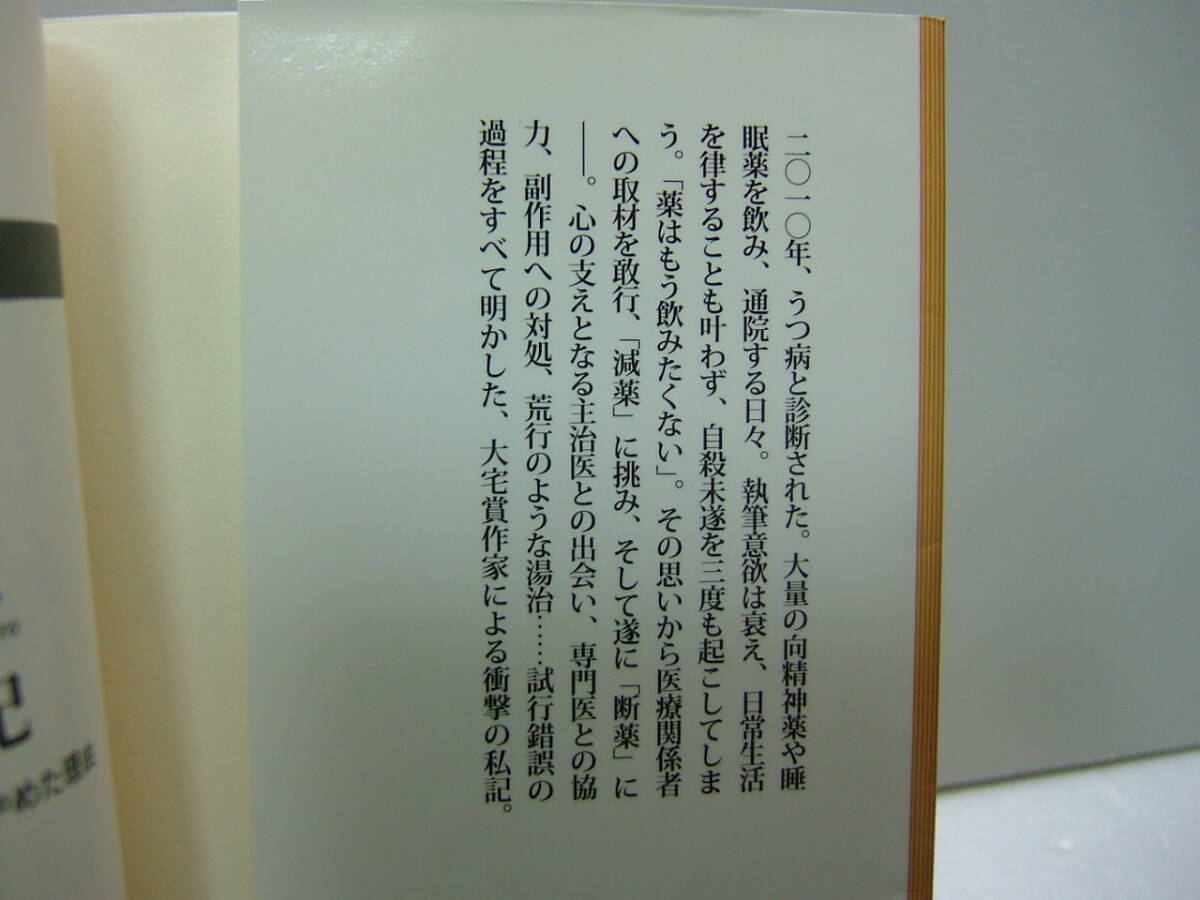 二〇一〇年、うつ病と診断された。大量の向精神薬や睡
眠薬を飲み、通院する日々。執筆意欲は衰え、日常生活
を律することも叶わず、自殺未遂を三度も起こしてしま
う。「薬はもう飲みたくない」。その思いから医療関係者
への取材を敢行、「減薬」に挑み、そして遂に「断薬」に
――。心の支えとなる主治医との出会い、専門医との協
力、副作用への対処、荒行のような湯治……試行錯誤の
過程をすべて明かした、大宅賞作家による衝撃の私記。
記
めた理由